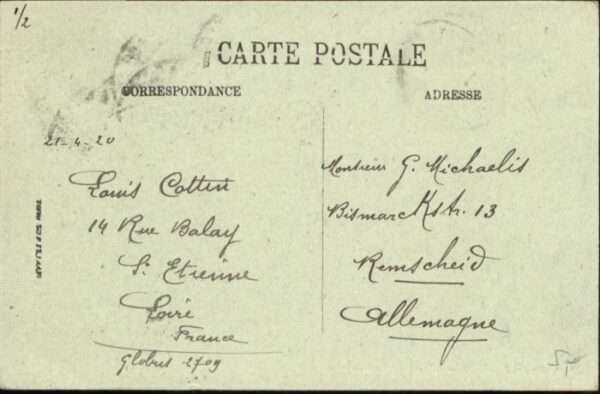 1/2
CARTE POSTALE
CORRESPONDANCE
ADRESSE
21-4-20
Louis Cottin
14 Rue Balay
St Etienne
Loire
France
Globus 2709
Monsieur G. Michaelis
Bismarckstr. 13
Remscheid
Allemagne